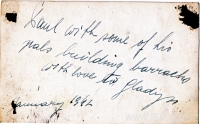 Paul with some of his
pals building barracks
with love to Gladys
January 1942